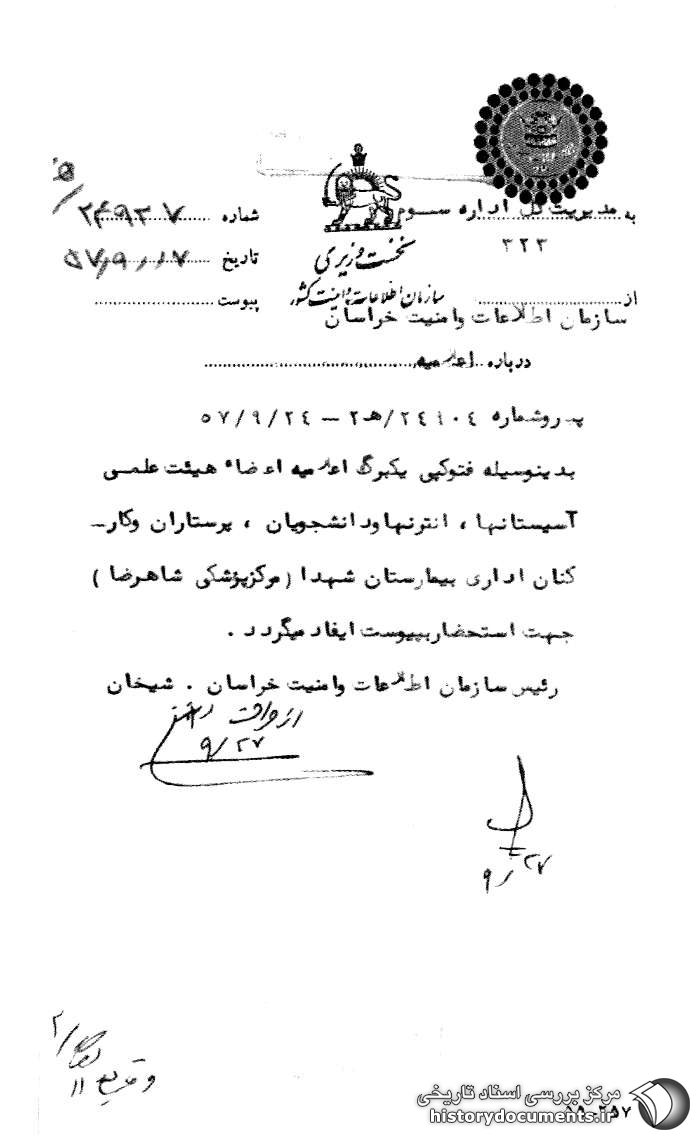 به مدیریت کل اداره سوم
۳۲۳
شماره ۲۴۹۳۷
نخست وزیری
تاریخ
سازمان اطلاعات و امنیت کشور
از
پیوست
سازمان اطلاعات وامنیت خراسان
درباره اعلامیه
پیروشماره ۲۴۱۰۴/هـ۲ – ۵۷/۹/۲۴
بدینوسیله فتوکپی یکبرگ اعلامیه اعضاء هیئت علمی
آسیستانها ، انترنهاودانشجویان ، پرستاران وکار–
کنان اداری بیمارستان شهدا (مرکزپزشکی شاهرضا )
جهت استحضاربپیوست ایفاد میگردد .
رئیس سازمان اطلاعات وامنیت خراسان . شیخان
۹/۲۷
۹/۲۷
۲/
۱۱
مرکز بررسی اسناد تاریخی
historydocuments.ir